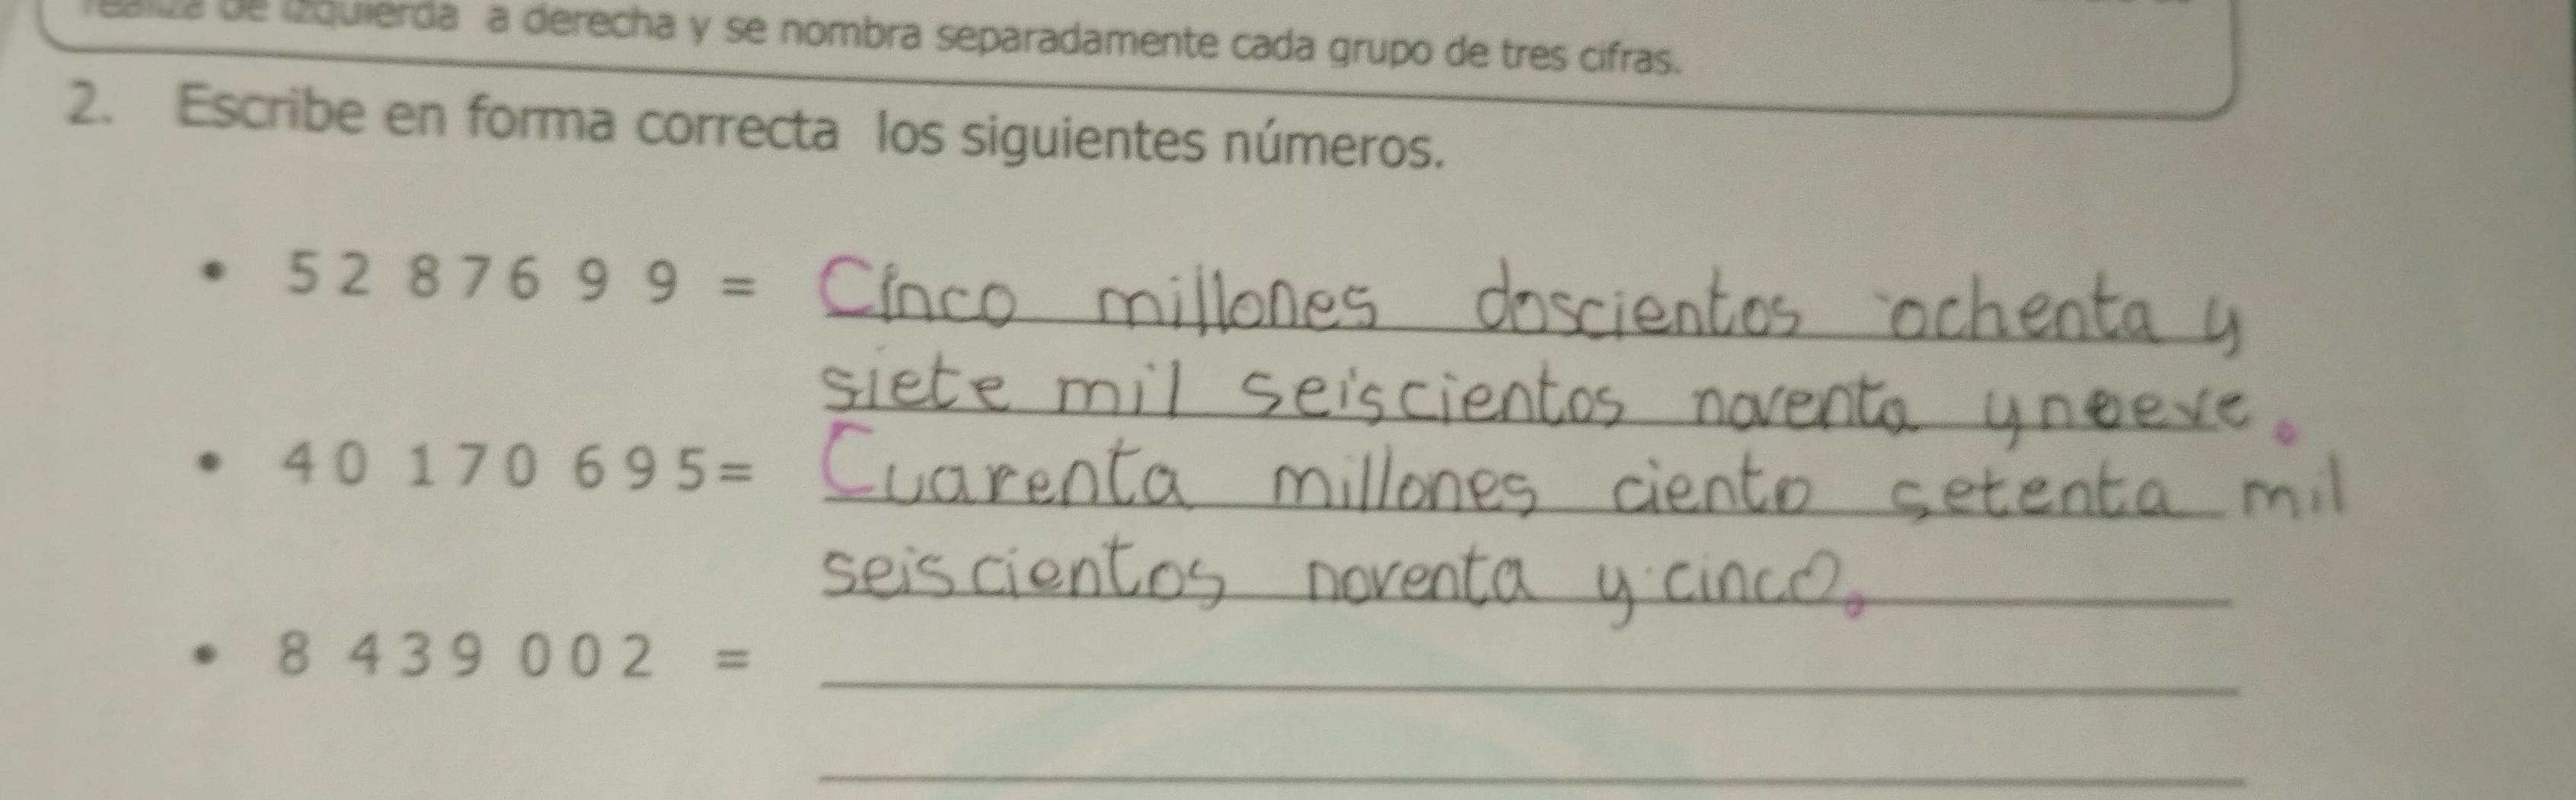 realiza de izquierda a derecha y se nombra separadamente cada grupo de tres cifras.
2. Escribe en forma correcta los siguientes números.
• 5 2 8 7 6 9 9 = Cinco millones doscientos ochenta y
siete mil seiscientos noventa y neeve.
• 4 0 1 7 0 6 9 5 = Cuarenta millones ciento setenta mil
seiscientos noventa y cinco.
• 8 4 3 9 0 0 2 =